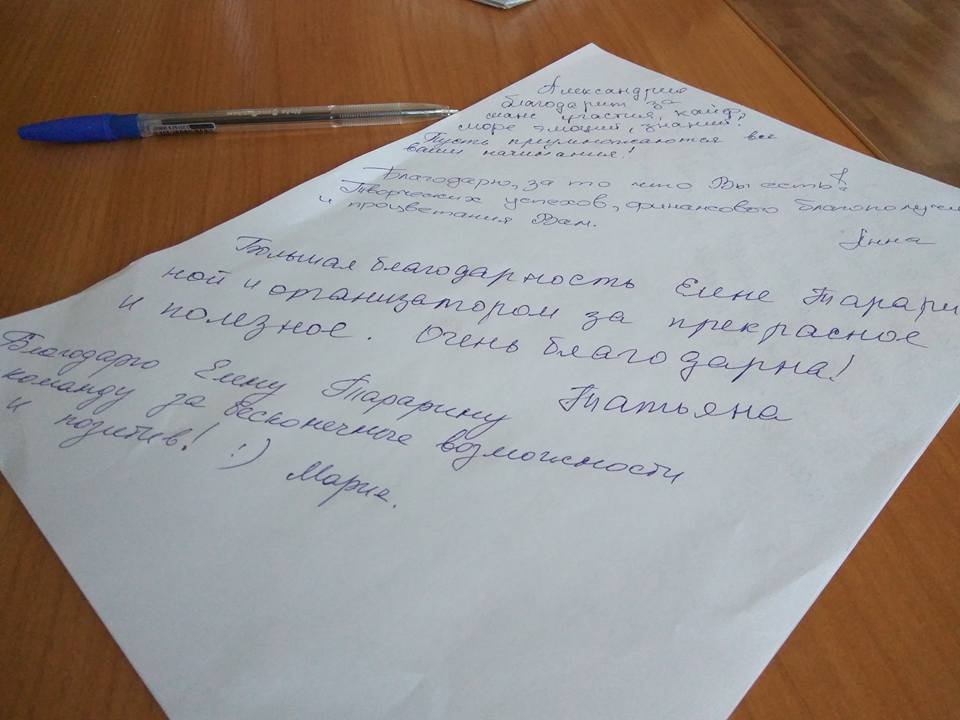 Александрия
благодарит за
шанс участия, кайф,
море эмоций, знаний!
Пусть приумножаются все
ваши начинания!
Благодарю, за то что Вы есть!
Творческих успехов, финансового благополучи
и процветания Вам.
Янна
Большая благодарность Елене Тарари
ной и организатором за прекрасное
и полезное. Очень благодарна!
Татьяна
Благодарю Елену Тарарину
команду за бесконечные возможности
и позитив! :)
Мария.